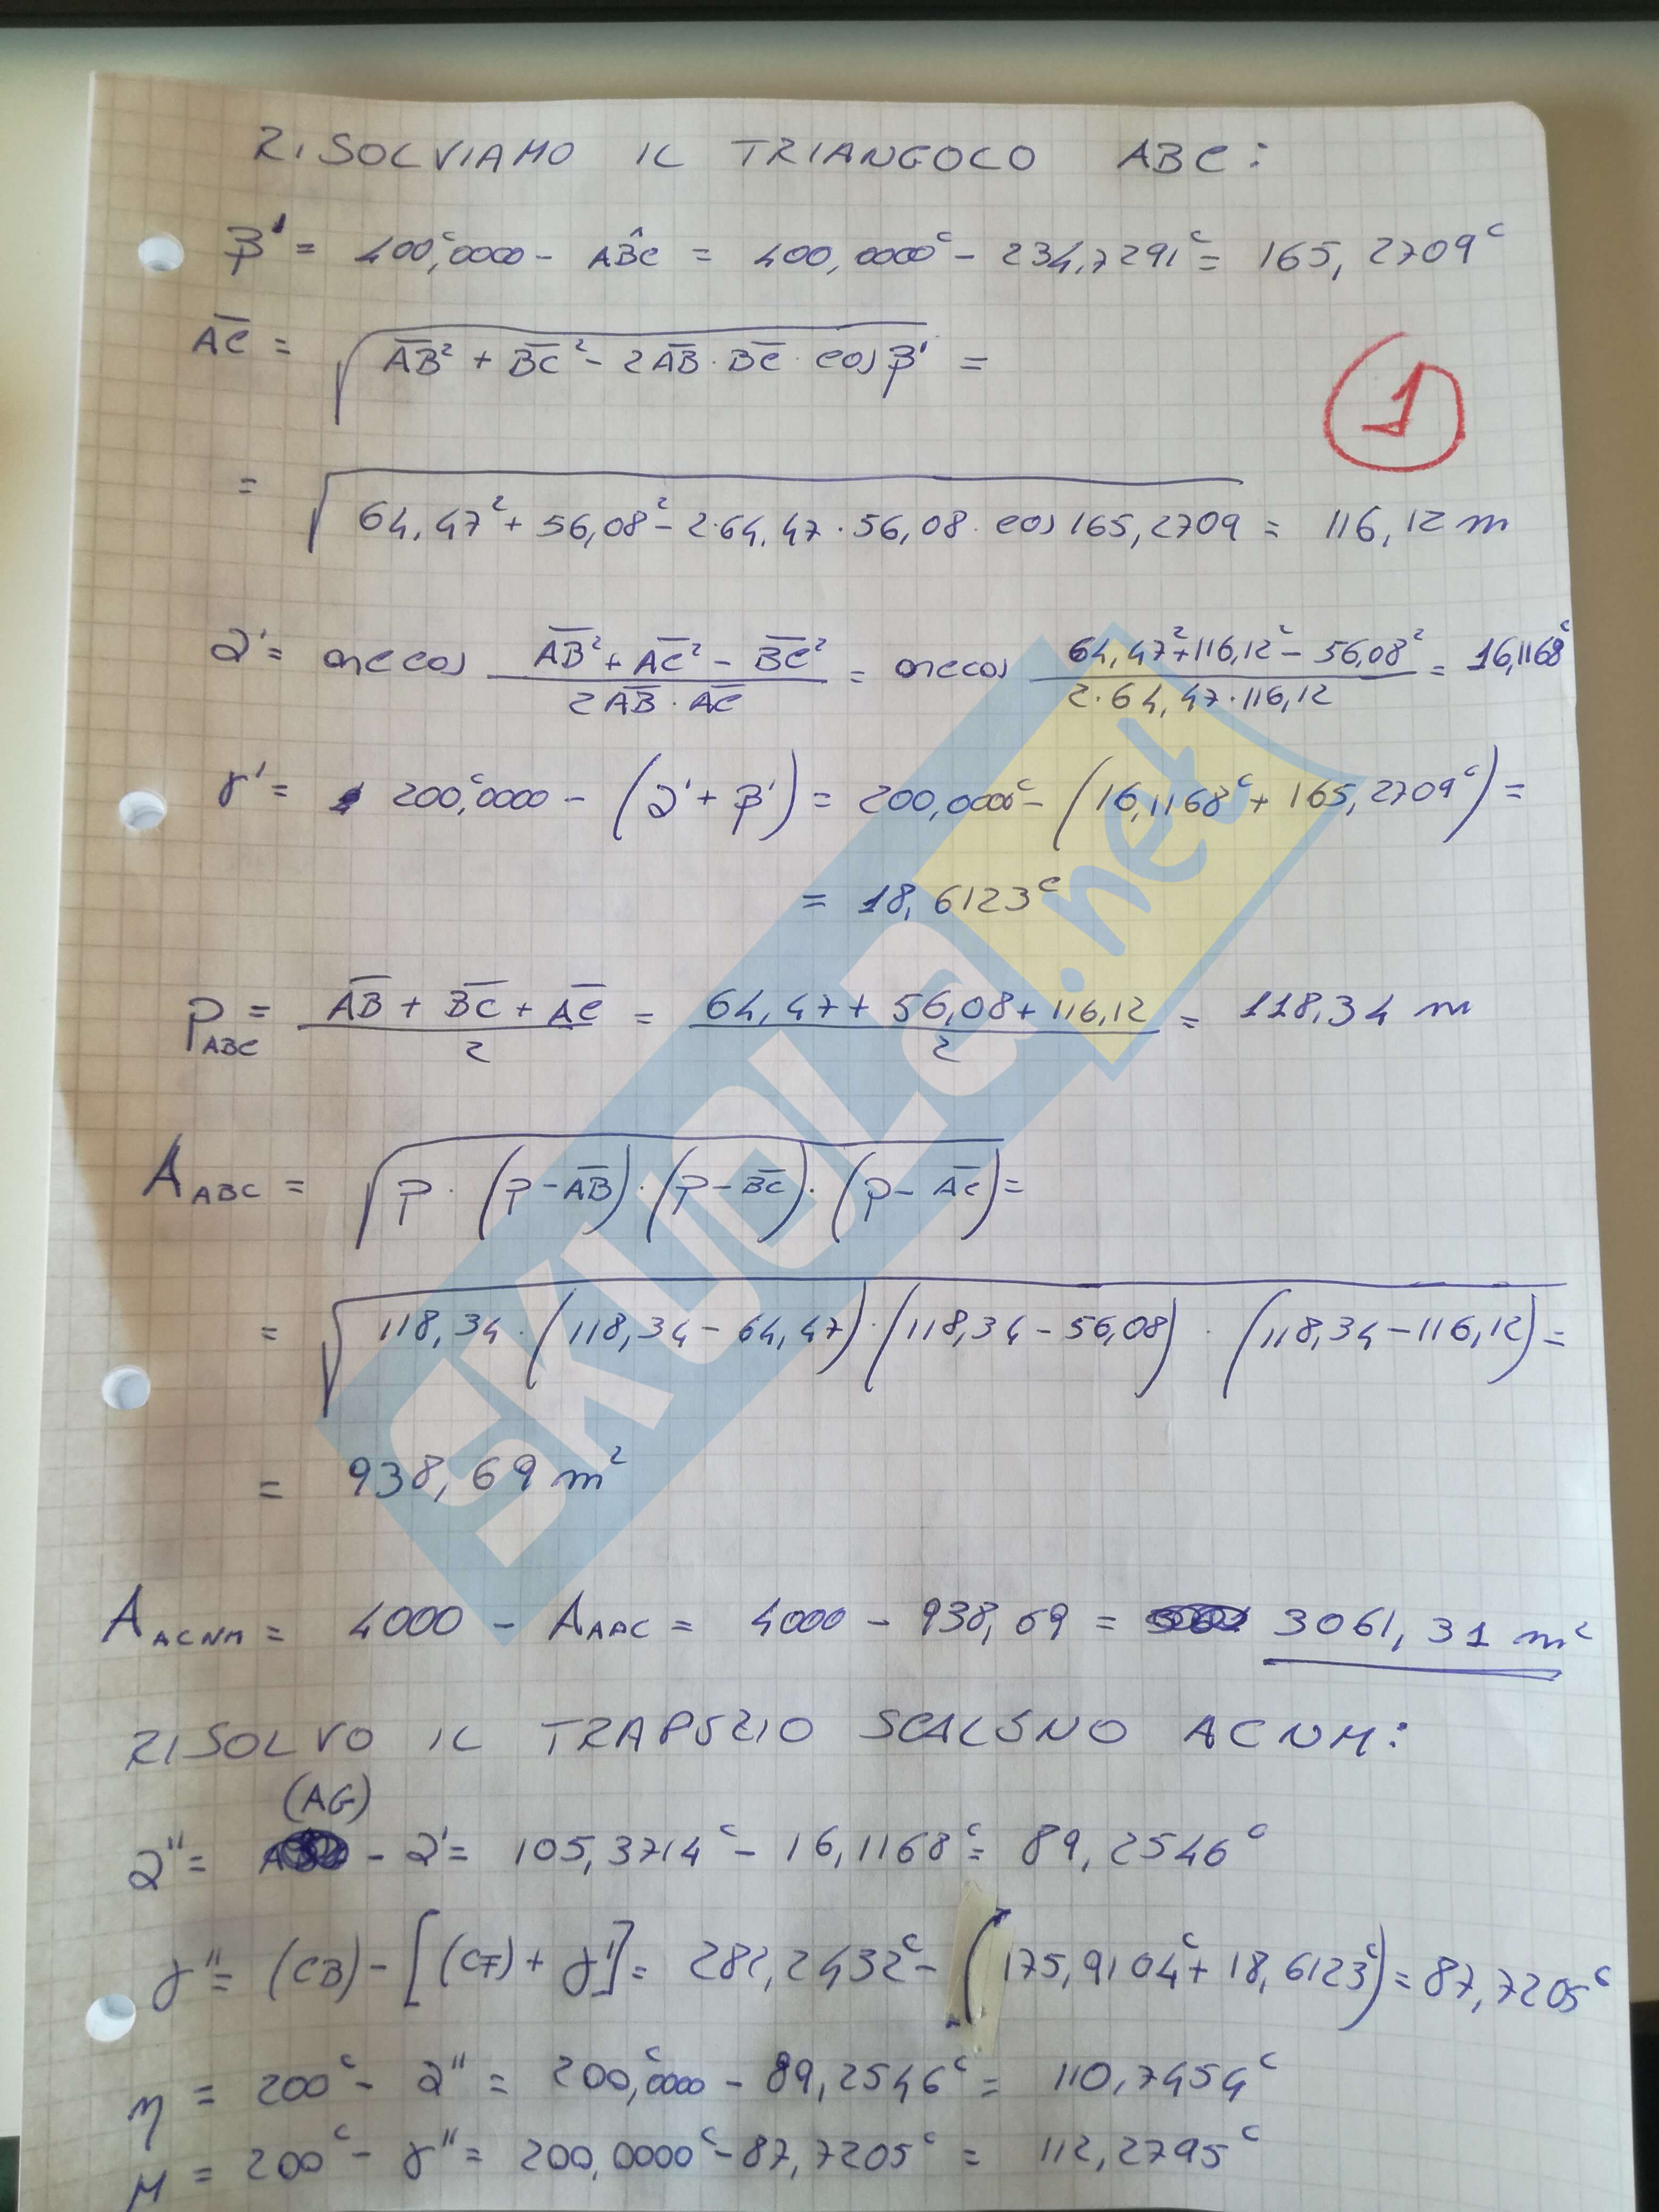 RISOLVIAMO IL TRIANGOLO ABC:
β' = 400,ᶜ0000 - AB̂C = 400,0000ᶜ - 234,7291ᶜ = 165,2709ᶜ
A̅C̅ = √(A̅B̅² + B̅C̅² - 2A̅B̅ · B̅C̅ · cos β') =
1
= √(64,47² + 56,08² - 2·64,47 · 56,08 · cos 165,2709) = 116,12 m
α' = arccos (A̅B̅² + A̅C̅² - B̅C̅²) / (2A̅B̅ · A̅C̅) = arccos (64,47² + 116,12² - 56,08²) / (2·64,47·116,12) = 16,1168ᶜ
γ' = 200,ᶜ0000 - (α' + β') = 200,0000ᶜ - (16,1168ᶜ + 165,2709ᶜ) =
= 18,6123ᶜ
P_ABC = (A̅B̅ + B̅C̅ + A̅C̅) / 2 = (64,47 + 56,08 + 116,12) / 2 = 118,34 m
A_ABC = √(p · (p - A̅B̅) · (p - B̅C̅) · (p - A̅C̅)) =
= √(118,34 · (118,34 - 64,47) · (118,34 - 56,08) · (118,34 - 116,12)) =
= 938,69 m²
A_ACNM = 4000 - A_ABC = 4000 - 938,69 = 3061,31 m²
RISOLVO IL TRAPEZIO SCALENO ACNM:
(AG)
α'' = - α' = 105,3714ᶜ - 16,1168ᶜ = 89,2546ᶜ
γ'' = (CB) - [(CF) + γ'] = 282,2432ᶜ - (175,9104ᶜ + 18,6123ᶜ) = 87,7205ᶜ
η = 200ᶜ - α'' = 200,ᶜ0000 - 89,2546ᶜ = 110,7454ᶜ
μ = 200ᶜ - γ'' = 200,0000ᶜ - 87,7205ᶜ = 112,2795ᶜ
SKUOLa.net